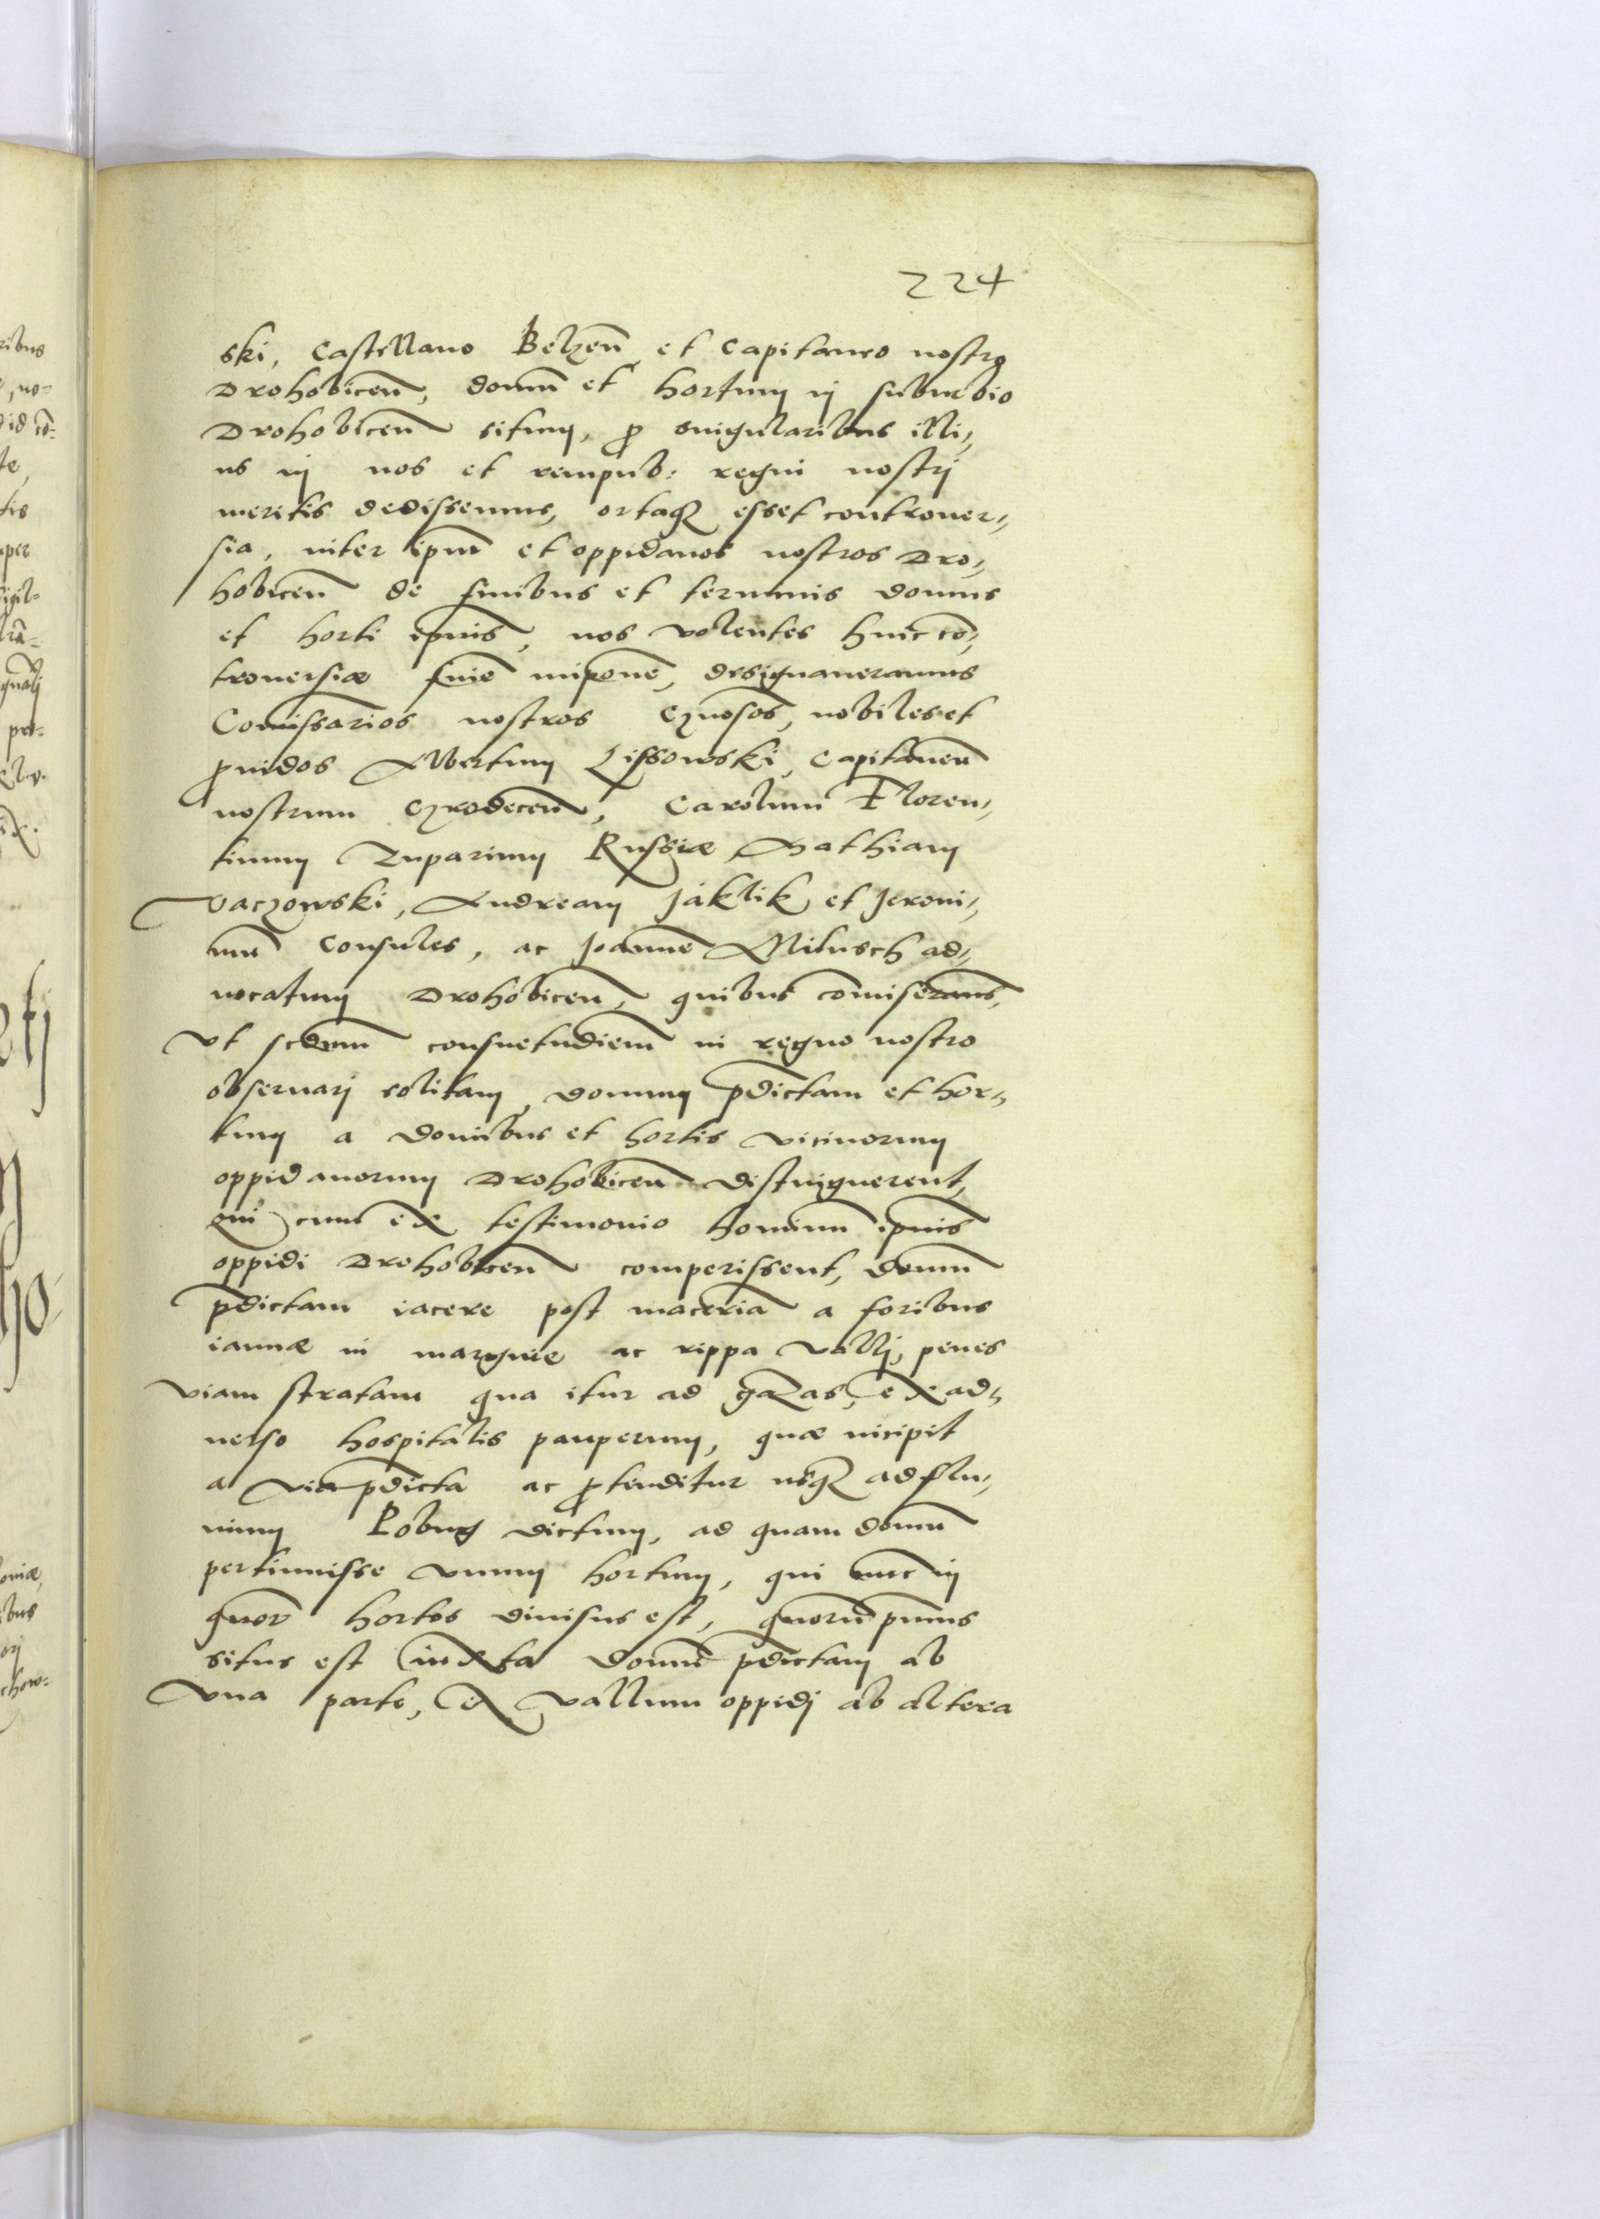 224
ski, Castellano Belzeñ et Capitaneo nostro
Drohobiceñ, domũ et hortum in suburbio
Drohobiceñ situm, ꝓ singularibus illi„
us in nos et rempub: regni nostri
meritis dedissemus, ortaqꝫ esset controuer„
sia, inter ipm̃ et oppidanos nostros Dro„
hobiceñ de finibus et terminis domus
et horti ipius̃, nos volentes huic cõ„
trouersiæ finẽ imponẽ, designaueramus
Comissarios nostros gñosos, nobiles et
ꝓuidos Albertum Lissowski, Capitaneũ
nostrum Grodeceñ, Carolum Floren„
tinum Zuparium Russiæ Mathiam
Vaczowski, Andream Jaklik et Jeroni„
mũ Consules, ac Joannẽ Milusch ad„
uocatum Drohobiceñ, quibus com̃iseram̃s,
Vt scdum̃ consuetudiem̃ in regno nostro
obseruari solitam, domum p̃dictam et hor„
tum a domibus et hortis vicinorum
oppidanorum Drohobiceñ distinguerent,
qui cum ex testimonio hominũ ipius̃
oppidi Drohobiceñ comperissent, domũ
p̃dictam iacere post maceriã a foribus
ianuæ in margine ac rippa valli, penes
viam stratam qua itur ad gazas, ex ad„
uerso hospitalis pauperum, quæ incipit
a via p̃dicta ac ꝓtenditur usqꝫ ad flu„
uium Pobug dictum, ad quam domũ
pertinuisse vnum hortum, qui nũc in
q̃tuor hortos diuisus est, quorũ pim̃us
situs est iuxta domũ p̃dictam ab
Vna parte, et vallum oppidi ab altera